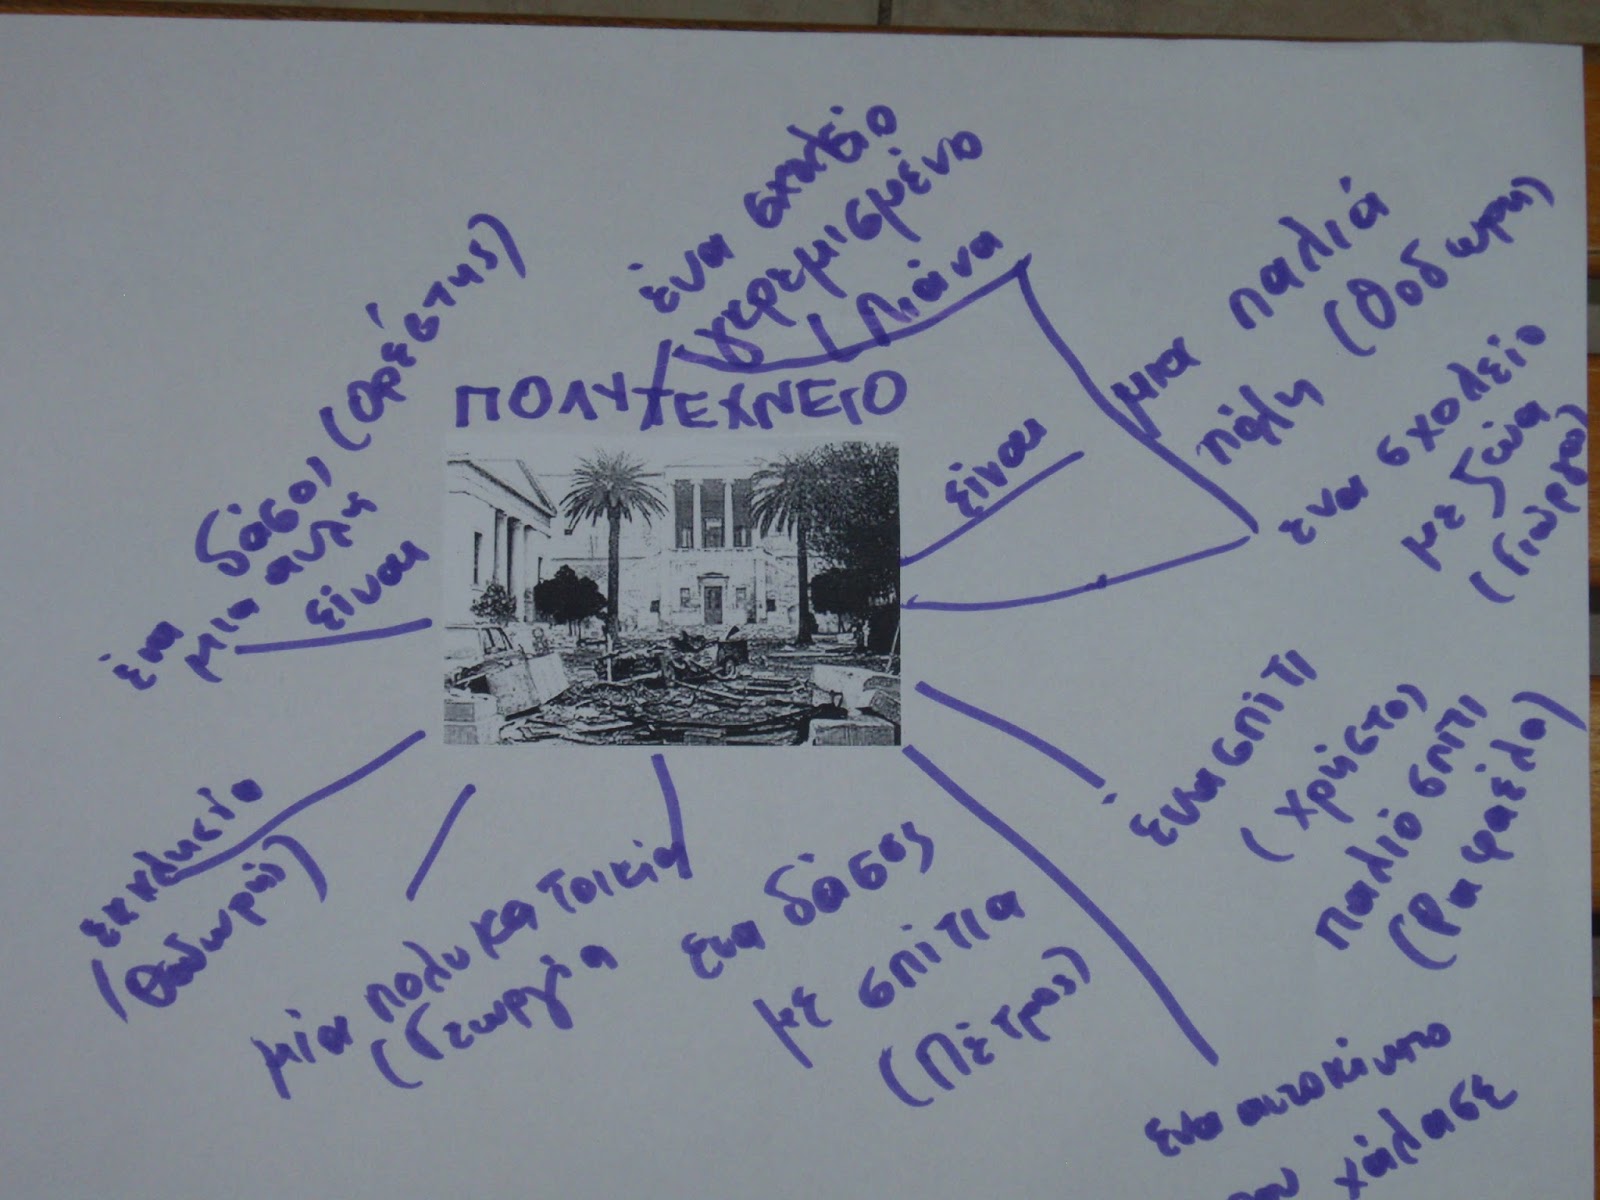 ΠΟΛΥΤΕΧΝΕΙΟ
ένα σχολείο
γερεμισμένο
Λιάνα
είναι
μια παλιά
πόλη (Θοδωρή)
ενα σχολείο
με ζώα
(Γιώργο)
ένα σπίτι
(Χρήστο)
παλιό σπίτι
(Ραφαέλο)
ενα αυτοκίνητο
που χάλασε
ενα δάσος
με σπίτια
(Πέτρος)
μία πολυκατοικία
(Γεωργία
εκκλησίο
(Θοδωρή)
ένα δάσος (Ορέστης)
μια αυλή
είναι